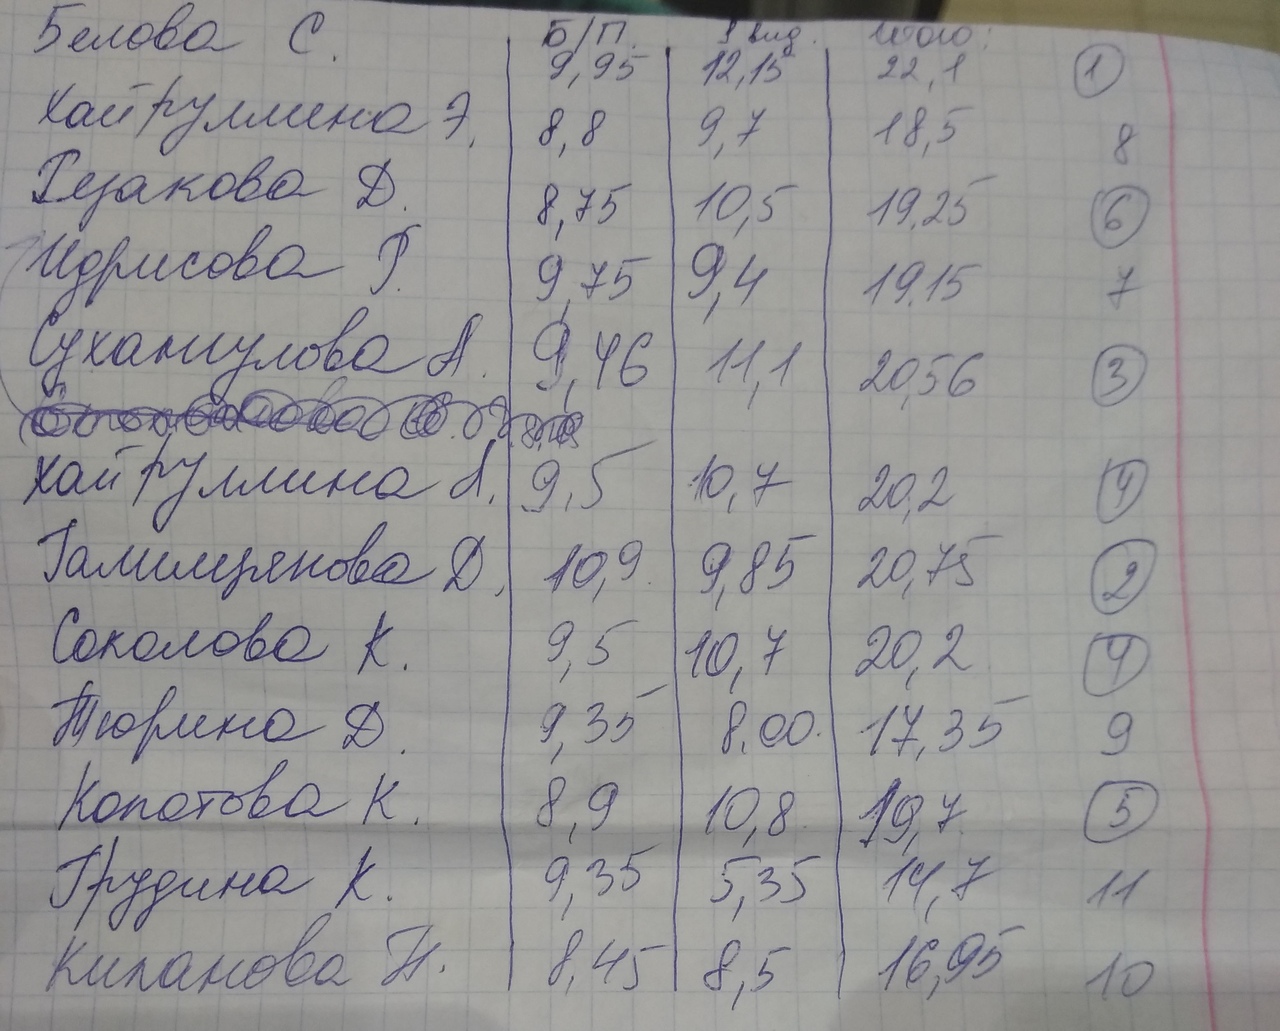 Б/П. 1 вид. Итого:
Белова С. 9,95 12,15 22,1 1
Хайруллина Э. 8,8 9,7 18,5 8
Резакова Д. 8,75 10,5 19.25 6
Идрисова Г. 9,75 9,4 19.15 7
Сухангулова А. 9,46 11,1 20,56 3
Хайруллина А. 9,5 10,7 20,2 4
Галимзянова Д. 10,9. 9,85 20,75 2
Соколова К. 9,5 10,7 20,2 4
Тюрина Д. 9,35 8.00. 17,35 9
Копотова К. 8,9 10,8. 19,7 5
Грудина К. 9,35 5,35 14,7 11
Кипанова Н. 8,45 8,5 16,95 10